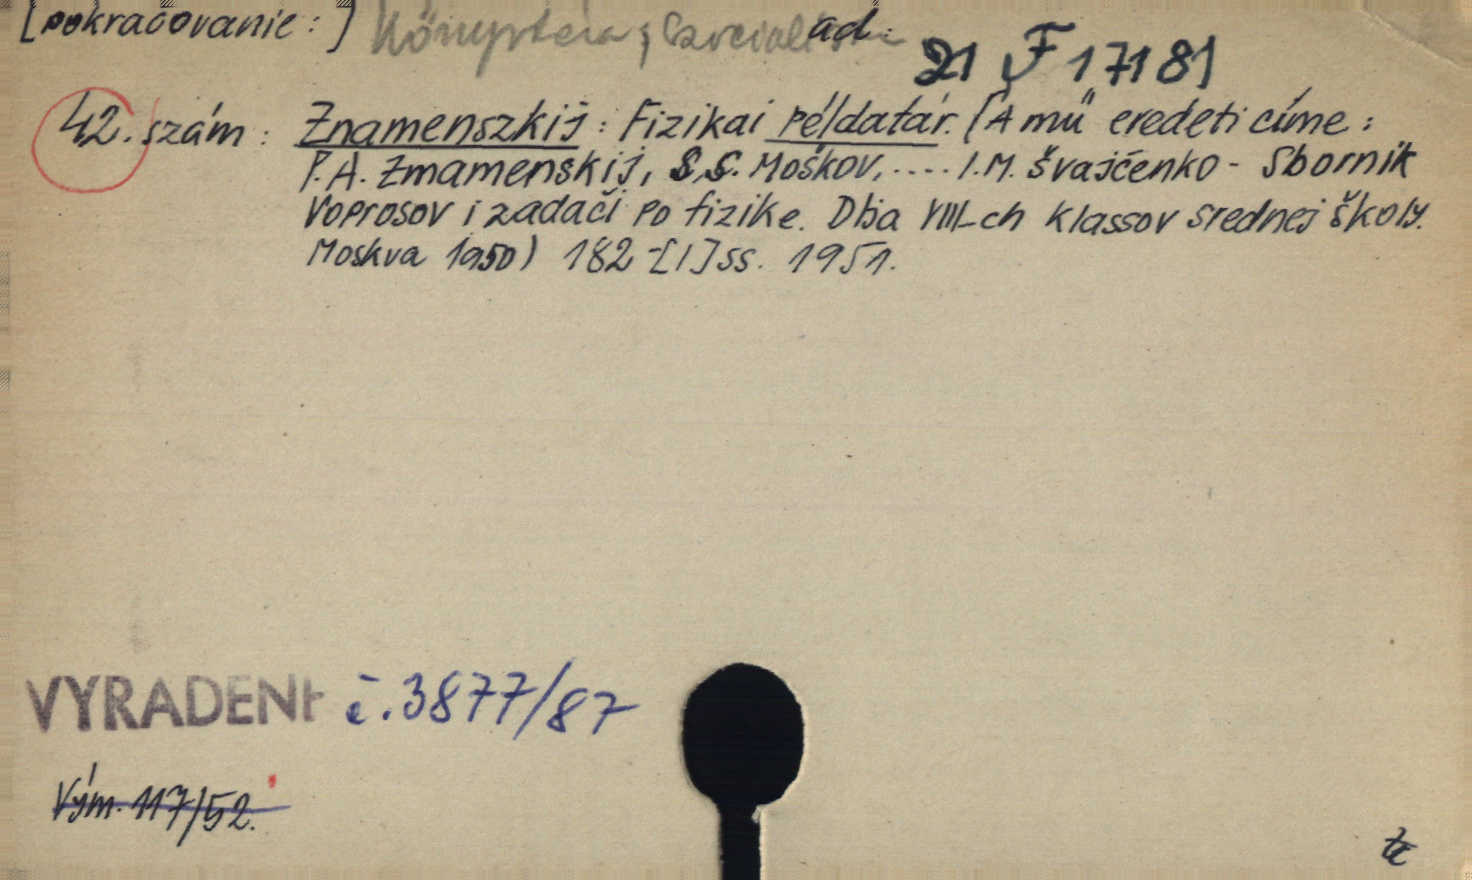 [pokračovanie:] Könyvtára, ad.
21 F 17181
42. szám: Znamenszkij: Fizikai példatár. (A mű eredeti címe:
P.A. Zmamenskij, S.S. Moškov, .... I.M. Švajčenko - Sbornik
Voprosov i zadači po fizike. Dlja VIII-ch klassov srednej školy.
Moskva 1950) 182-[1] ss. 1951.
VYRADENÉ č. 3877/87
Vým. 117/52.